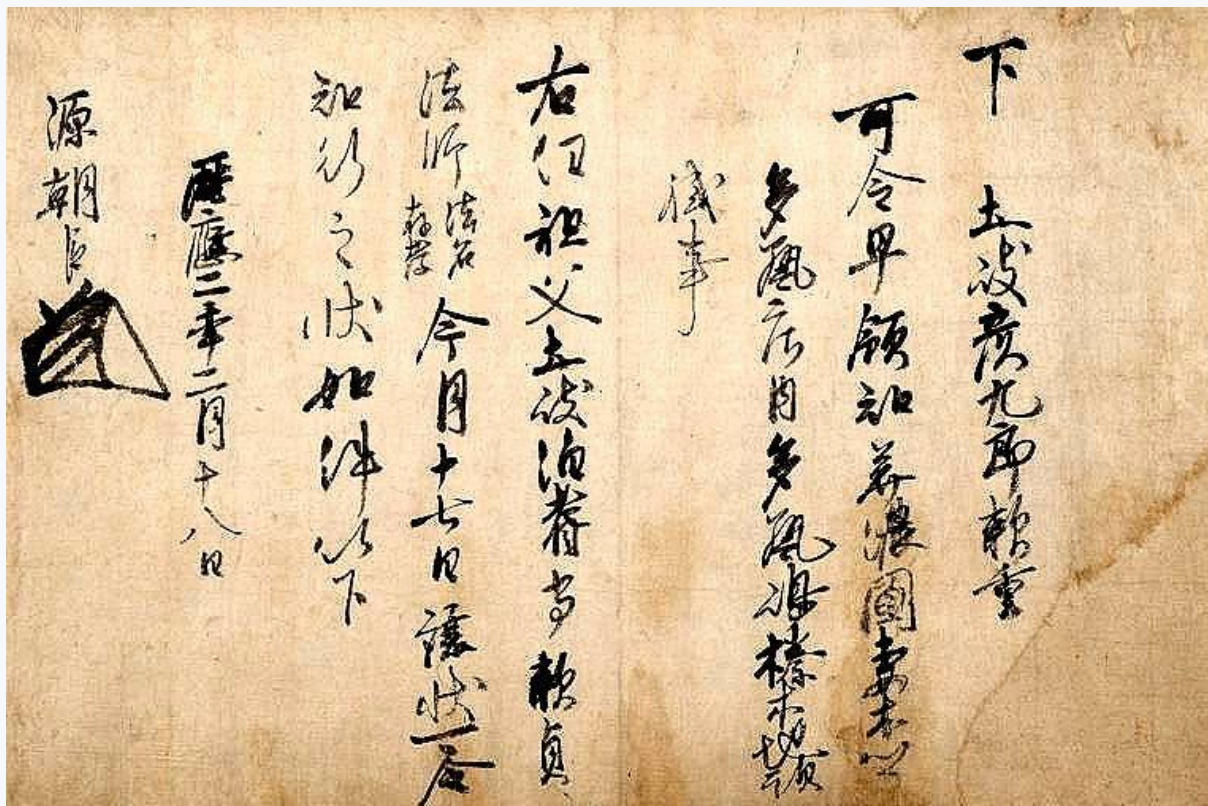 下 土岐彦九郎頼重
可令早領知美濃国妻木郷
多藝庄内多藝嶋榛木地頭
職事
右任祖父土岐伯耆守頼貞
法師 法名存孝 今月十七日譲状可令
知行之状如件以下
暦應二年二月十八日
源朝臣